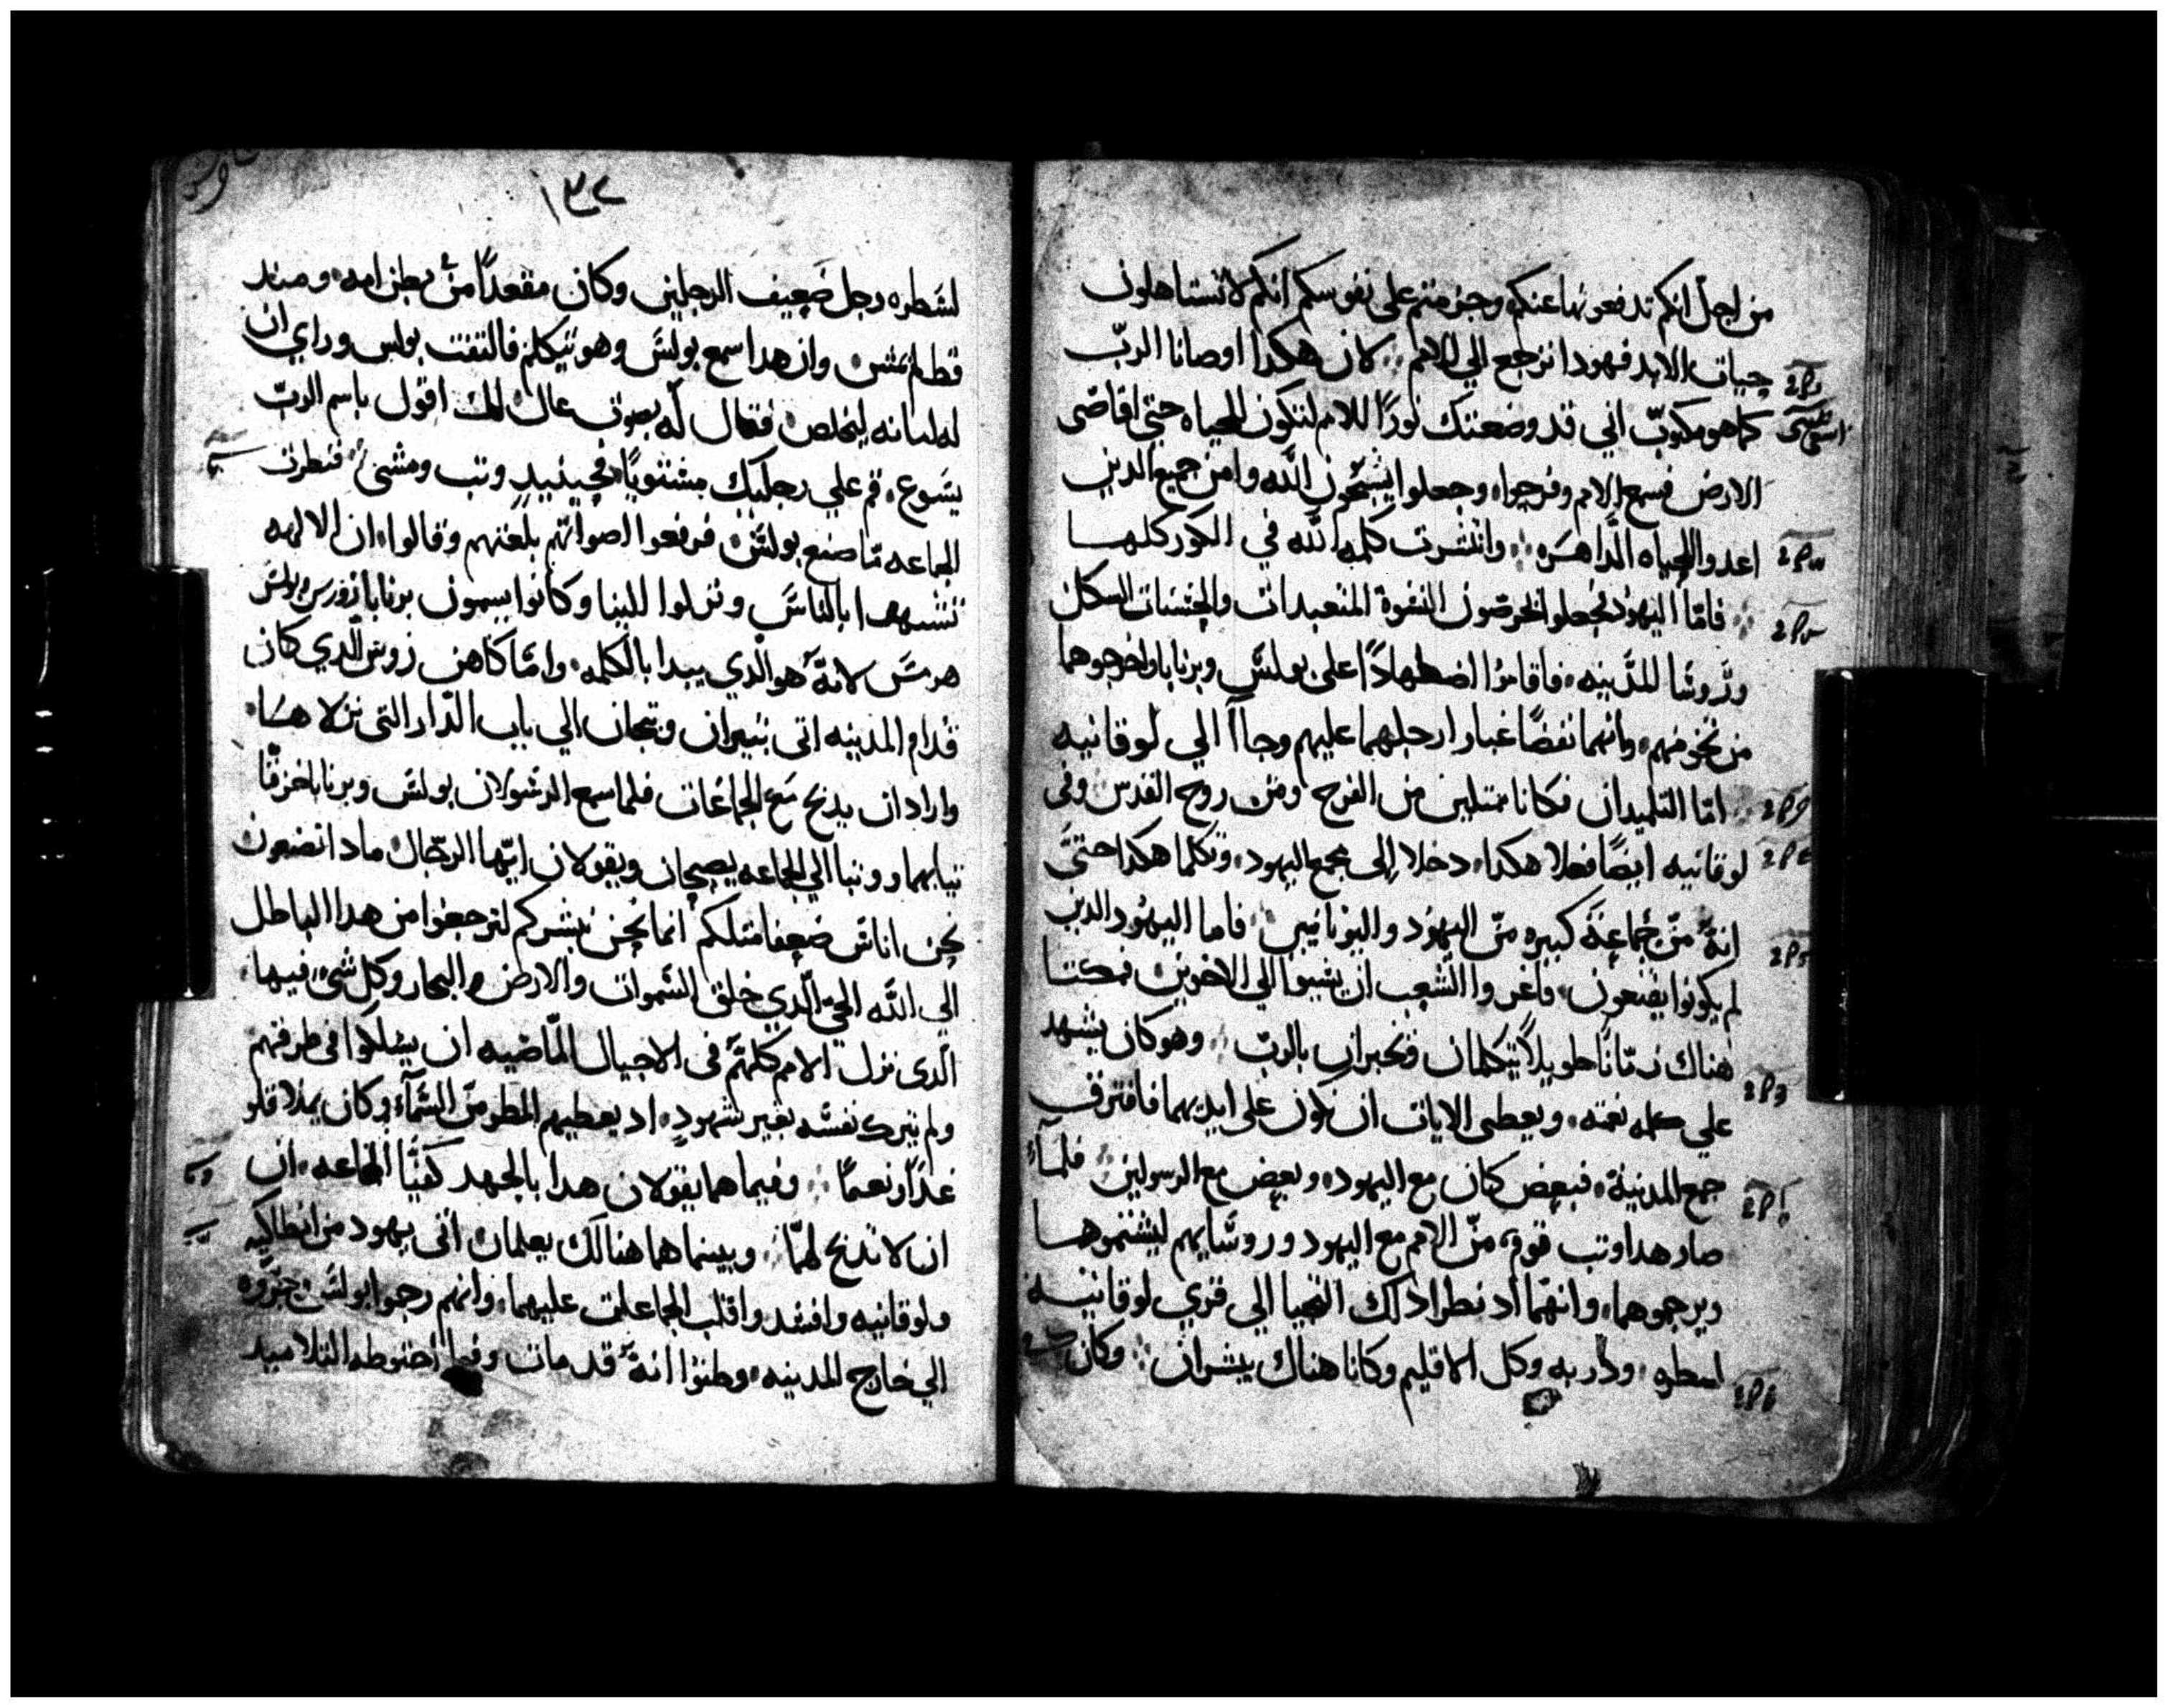 من اجل انكم تدفعونها عنكم وجزمتم على نفوسكم انكم لا تستاهلون
حيات الابد فهودا نرجع الي الامم ∴ لان هكدا اوصانا الربّ
كما هو مكتوبّ اني قد وضعتك نورًا للامم لتكون للحياه حتي اقاصى
الارض فسمع الامم وفرحوا وجعلوا يسبّحون اللّه وامن جميع الدين
اعدوا للحياه الدّاهره ∴ وانتشرت كلمه اللّه في الكور كلها
∴ فامّا اليهود فجعلوا يحرضون النسوة المتعبدات والحسنات الشكل
وروسا المدينه فاقاموا اضطهادًا على بولس وبرنابا واخرجوهما
من تخومهم وانهما نفضا غبار ارجلهما عليهم وجاآ الي لوقانيه
∴ امّا التلميدان فكانا ممتليين من الفرح ومن روح القدس وفى
لوقانيه ايضًا فعلا هكدا دخلا إلى مجمع اليهود وتكلما هكدا حتىّ
انه امن جماعة كبيره منّ اليهود واليونانيين ∴ فاما اليهود الدين
لم يكونوا يقنعون فاغروا الشعب ان يسيوا الي الاخوين فمكتا
هناك زمانًا طويلاً يتكلمان ويخبران بالربّ ∴ وهو كان يشهد
علي كلمه نعمته ويعطى الايات ان تكون على ايديهما فافترق
جمع المدينة فبعض كان مع اليهود وبعض مع الرسولين ∴ فلمآ
صار هدا وتب قوم منّ الامم مع اليهود وروسايهم ليشتموهما
ويرجموهما وانهما اد نظرا دالك التجيا الي قري لوقانيه
لسطره ودربه وكل الاقليم وكانا هناك يبشران ∴ وكان
١٣٤
لسطره رجل ضعيف الرجلين وكان مقعدًا من بطن امه ومند
قط لم يمش وان هدا سمع بولس وهو يتكلم فالتفت بولس وراي ان
له امانه ليخلص فقال له بصوت عال لك اقول باسم الربّ
يسوع قم علي رجليك مستويًا فحينيد وتب ومشى ∴ فنظرت
الجماعه ما صنع بولس فرفعوا اصواتهم بلغتهم وقالوا ان الالهه
تشبهوا بالناس ونزلوا الينا وكانوا يسمون برنابا زورس وبولس
هرمس لانه هو الدي يبدا بالكلمه وامّا كاهن زوس الدي كان
قدام المدينه اتى بتيران وتيجان الي باب الدّار التى نزلا هنا
واراد ان يدبح مع الجماعات فلما سمع الرسولان بولس وبرنابا خزقا
تيابهما ووتبا الي الجماعه يصيحان ويقولان ايّها الرجال مادا تصنعون
نحن اناس ضعفا متلكم انما نحن نبشركم لترجعوا من هدا الباطل
الي اللّه الحيّ الّدي خلق السموات والارض والبحار وكل شي فيها
الّدى نزل الامم كلهم فى الاجيال الماضيه ان يسلكوا فى طرقهم
ولم يترك نفسه بغير شهود اد يعطيهم المطر من السمآء وكان يملا قلو
غدآ ونعمًا ∴ وفيما هما يقولان هدا بالجهد كفيّا الجماعه ان
ان لا تدبح لهمّا ∴ وبينما هما هنالك يعلمان اتى يهود من انطاكيه
ولوقانيه وافسد واقلب الجماعات عليهما وانهم رجموا بولس وجرّوه
الي خارج المدينه وظنوا انه قد مات وفيما احتوطه التلاميد